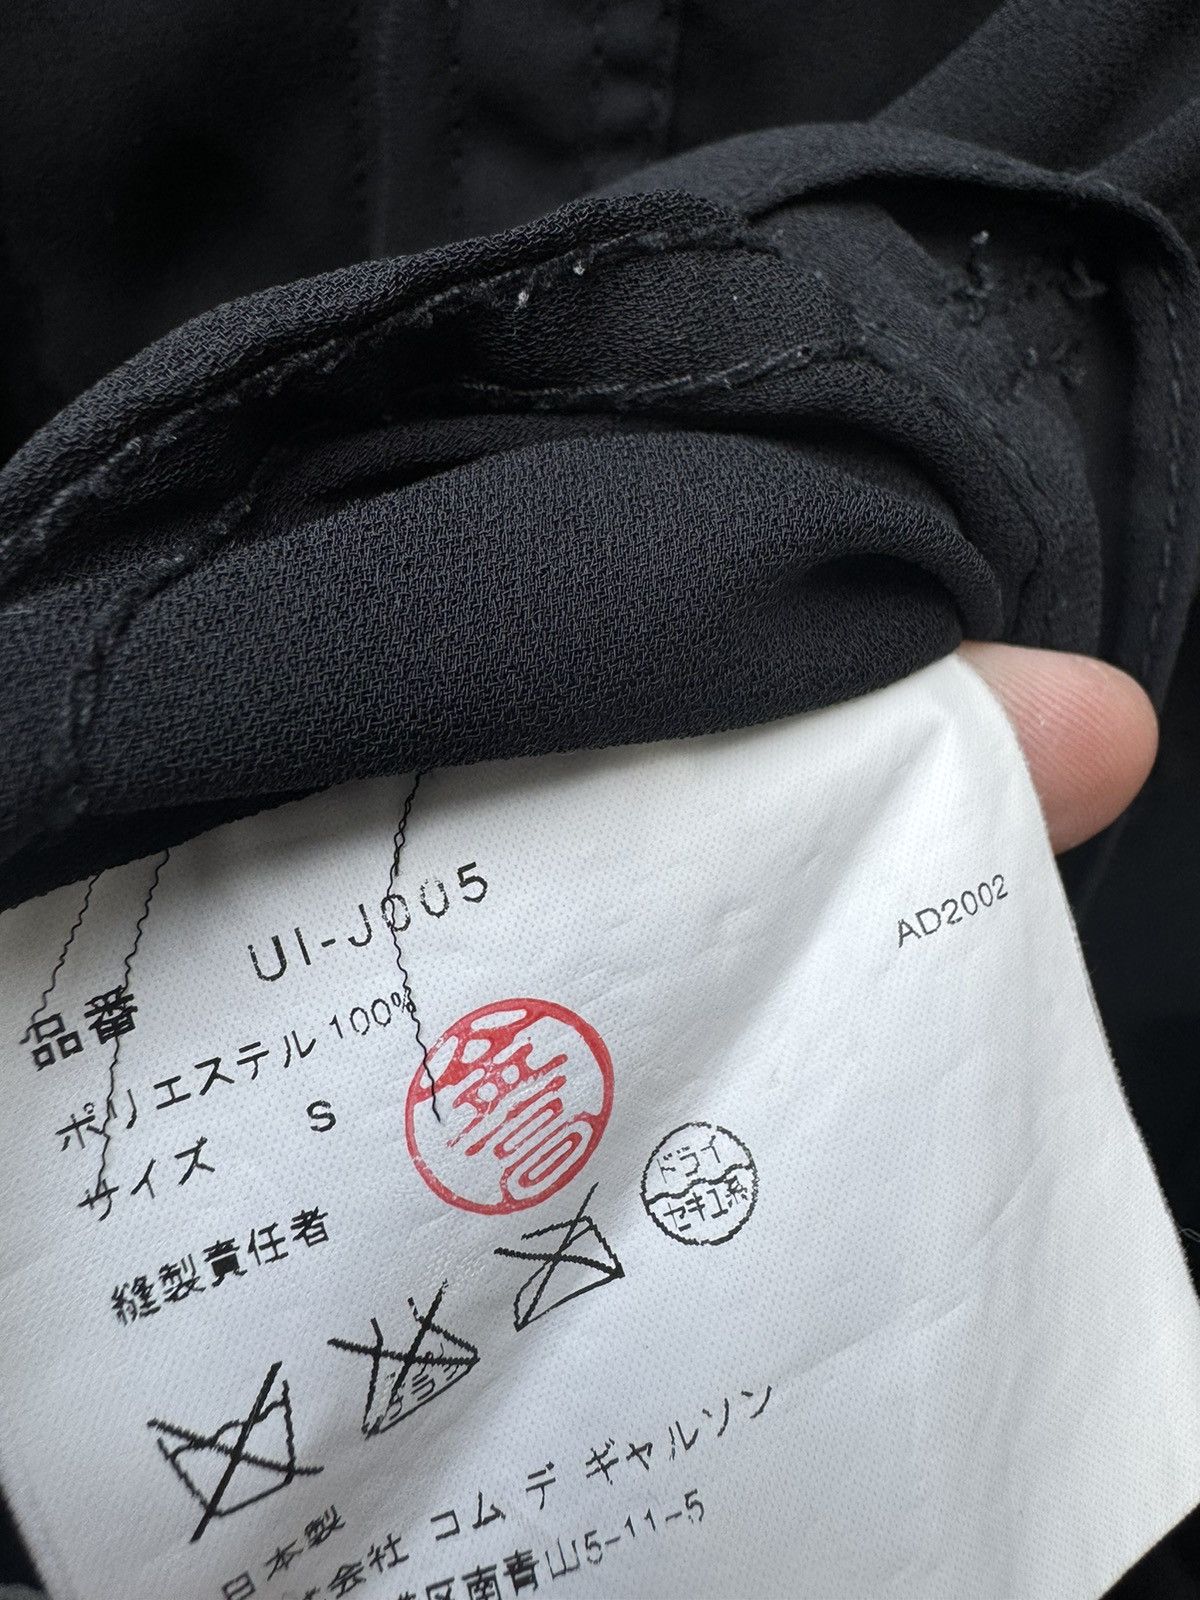 AD2002
品番 UI-J005
ポリエステル100%
サイズ S
縫製責任者
ドライ
セキユ系
日本製
会社 コム デ ギャルソン
区南青山5-11-5